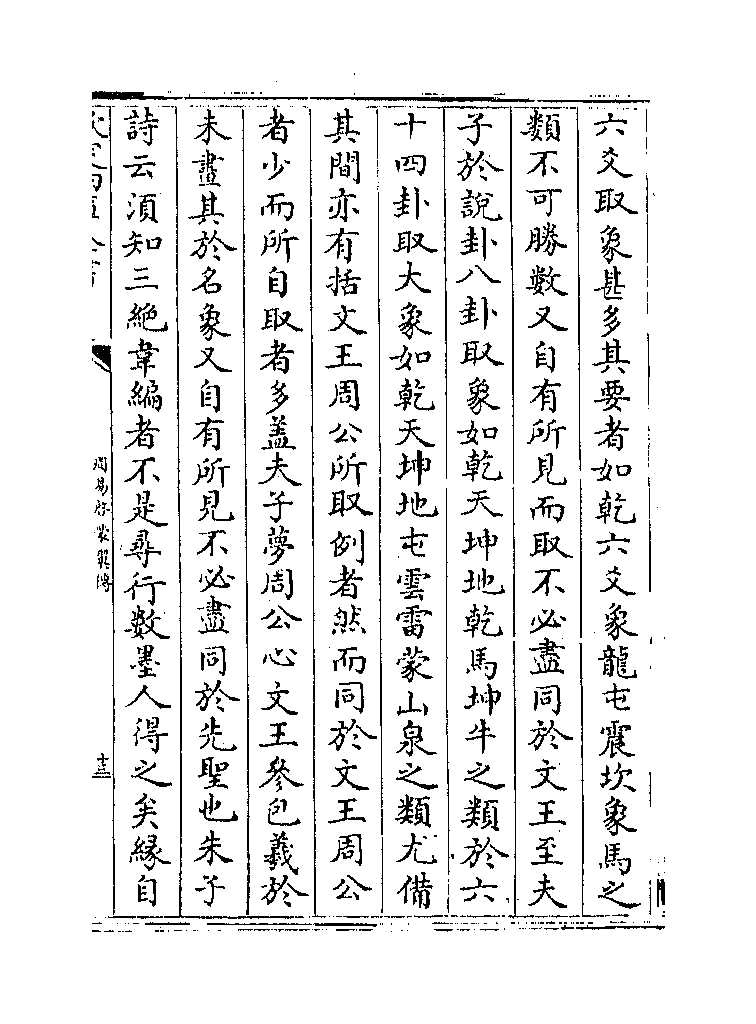 六爻取象甚多其要者如乾六爻象龍屯震坎象馬之
類不可勝數又自有所見而取不必盡同於文王至夫
子於說卦八卦取象如乾天坤地乾馬坤牛之類於六
十四卦取大象如乾天坤地屯雲雷蒙山泉之類尤備
其間亦有括文王周公所取例者然而同於文王周公
者少而所自取者多盖夫子夢周公心文王參包羲於
未盡其於名象又自有所見不必盡同於先聖也朱子
詩云湏知三絶韋編者不是尋行數墨人得之矣縁自
周易啓蒙翼傳
十三